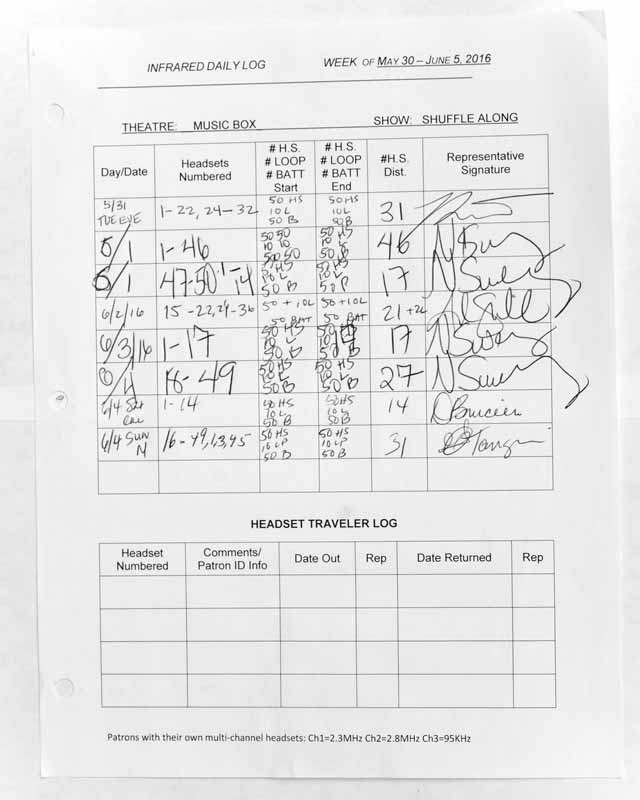 INFRARED DAILY LOG WEEK OF MAY 30 – JUNE 5, 2016
THEATRE: MUSIC BOX SHOW: SHUFFLE ALONG
Day/Date Headsets Numbered # H.S. # LOOP # BATT Start # H.S. # LOOP # BATT End #H.S. Dist. Representative Signature
5/31 TUE EVE 1-22, 24-32 50 HS 10 L 50 B 50 HS 10 L 50 B 31
/1 1-46 46
/1 47-50 1-14 50 B 17
6/2/16 15-22, 24-36 50 + 10L 50 BAT 50 + 10L 50 BAT 21 + 2L
6/3/16 1-17 50 HS 10 L 50 B 17
18-49 50 HS 10 L 50 B 50 HS 10 L 50 B 27
6/4 1-14 50 HS 10 L 50 B 50 HS 10 L 50 B 14
6/4 SUN M 16-49, 1, 13, 45 50 HS 10 LP 50 B 50 HS 10 LP 50 B 31
HEADSET TRAVELER LOG
Headset Numbered Comments/ Patron ID Info Date Out Rep Date Returned Rep
Patrons with their own multi-channel headsets: Ch1=2.3MHz Ch2=2.8MHz Ch3=95KHz